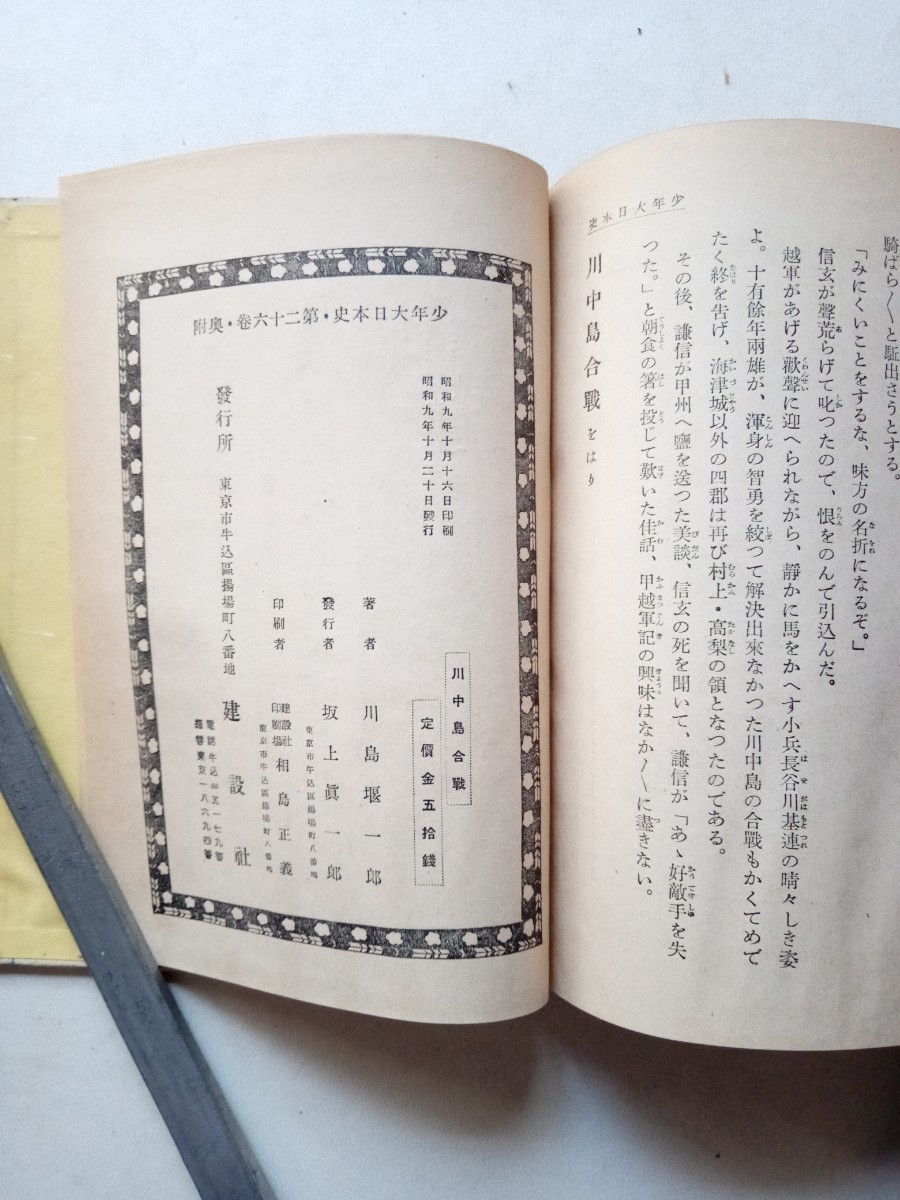 騎ばら〳〵と駈出さうとする。
「みにくいことをするな、味方の名折になるぞ。」
信玄が聲荒らげて叱つたので、恨をのんで引込んだ。
越軍があげる歡聲に迎へられながら、靜かに馬をかへす小兵長谷川基連の晴々しき姿
よ。十有餘年兩雄が、渾身の智勇を絞つて解決出來なかつた川中島の合戰もかくてめで
たく終を告げ、海津城以外の四郡は再び村上・高梨の領となつたのである。
その後、謙信が甲州へ鹽を送つた美談、信玄の死を聞いて、謙信が「あゝ好敵手を失
つた。」と朝食の箸を投じて歎いた佳話、甲越軍記の興味はなか〳〵に盡きない。
川中島合戰をはり
少年大日本史
少年大日本史・第二十六卷・奧附
昭和九年十月十六日印刷
昭和九年十月二十日發行
川中島合戰
定價金五拾錢
著者 川島堰一郎
發行者 坂上眞一郎
東京市牛込區揚場町八番地
印刷者 建設社印刷場 相島正義
東京市牛込區揚場町八番地
發行所 東京市牛込區揚場町八番地 建設社
電話牛込五一七九番
振替東京一八六九四番